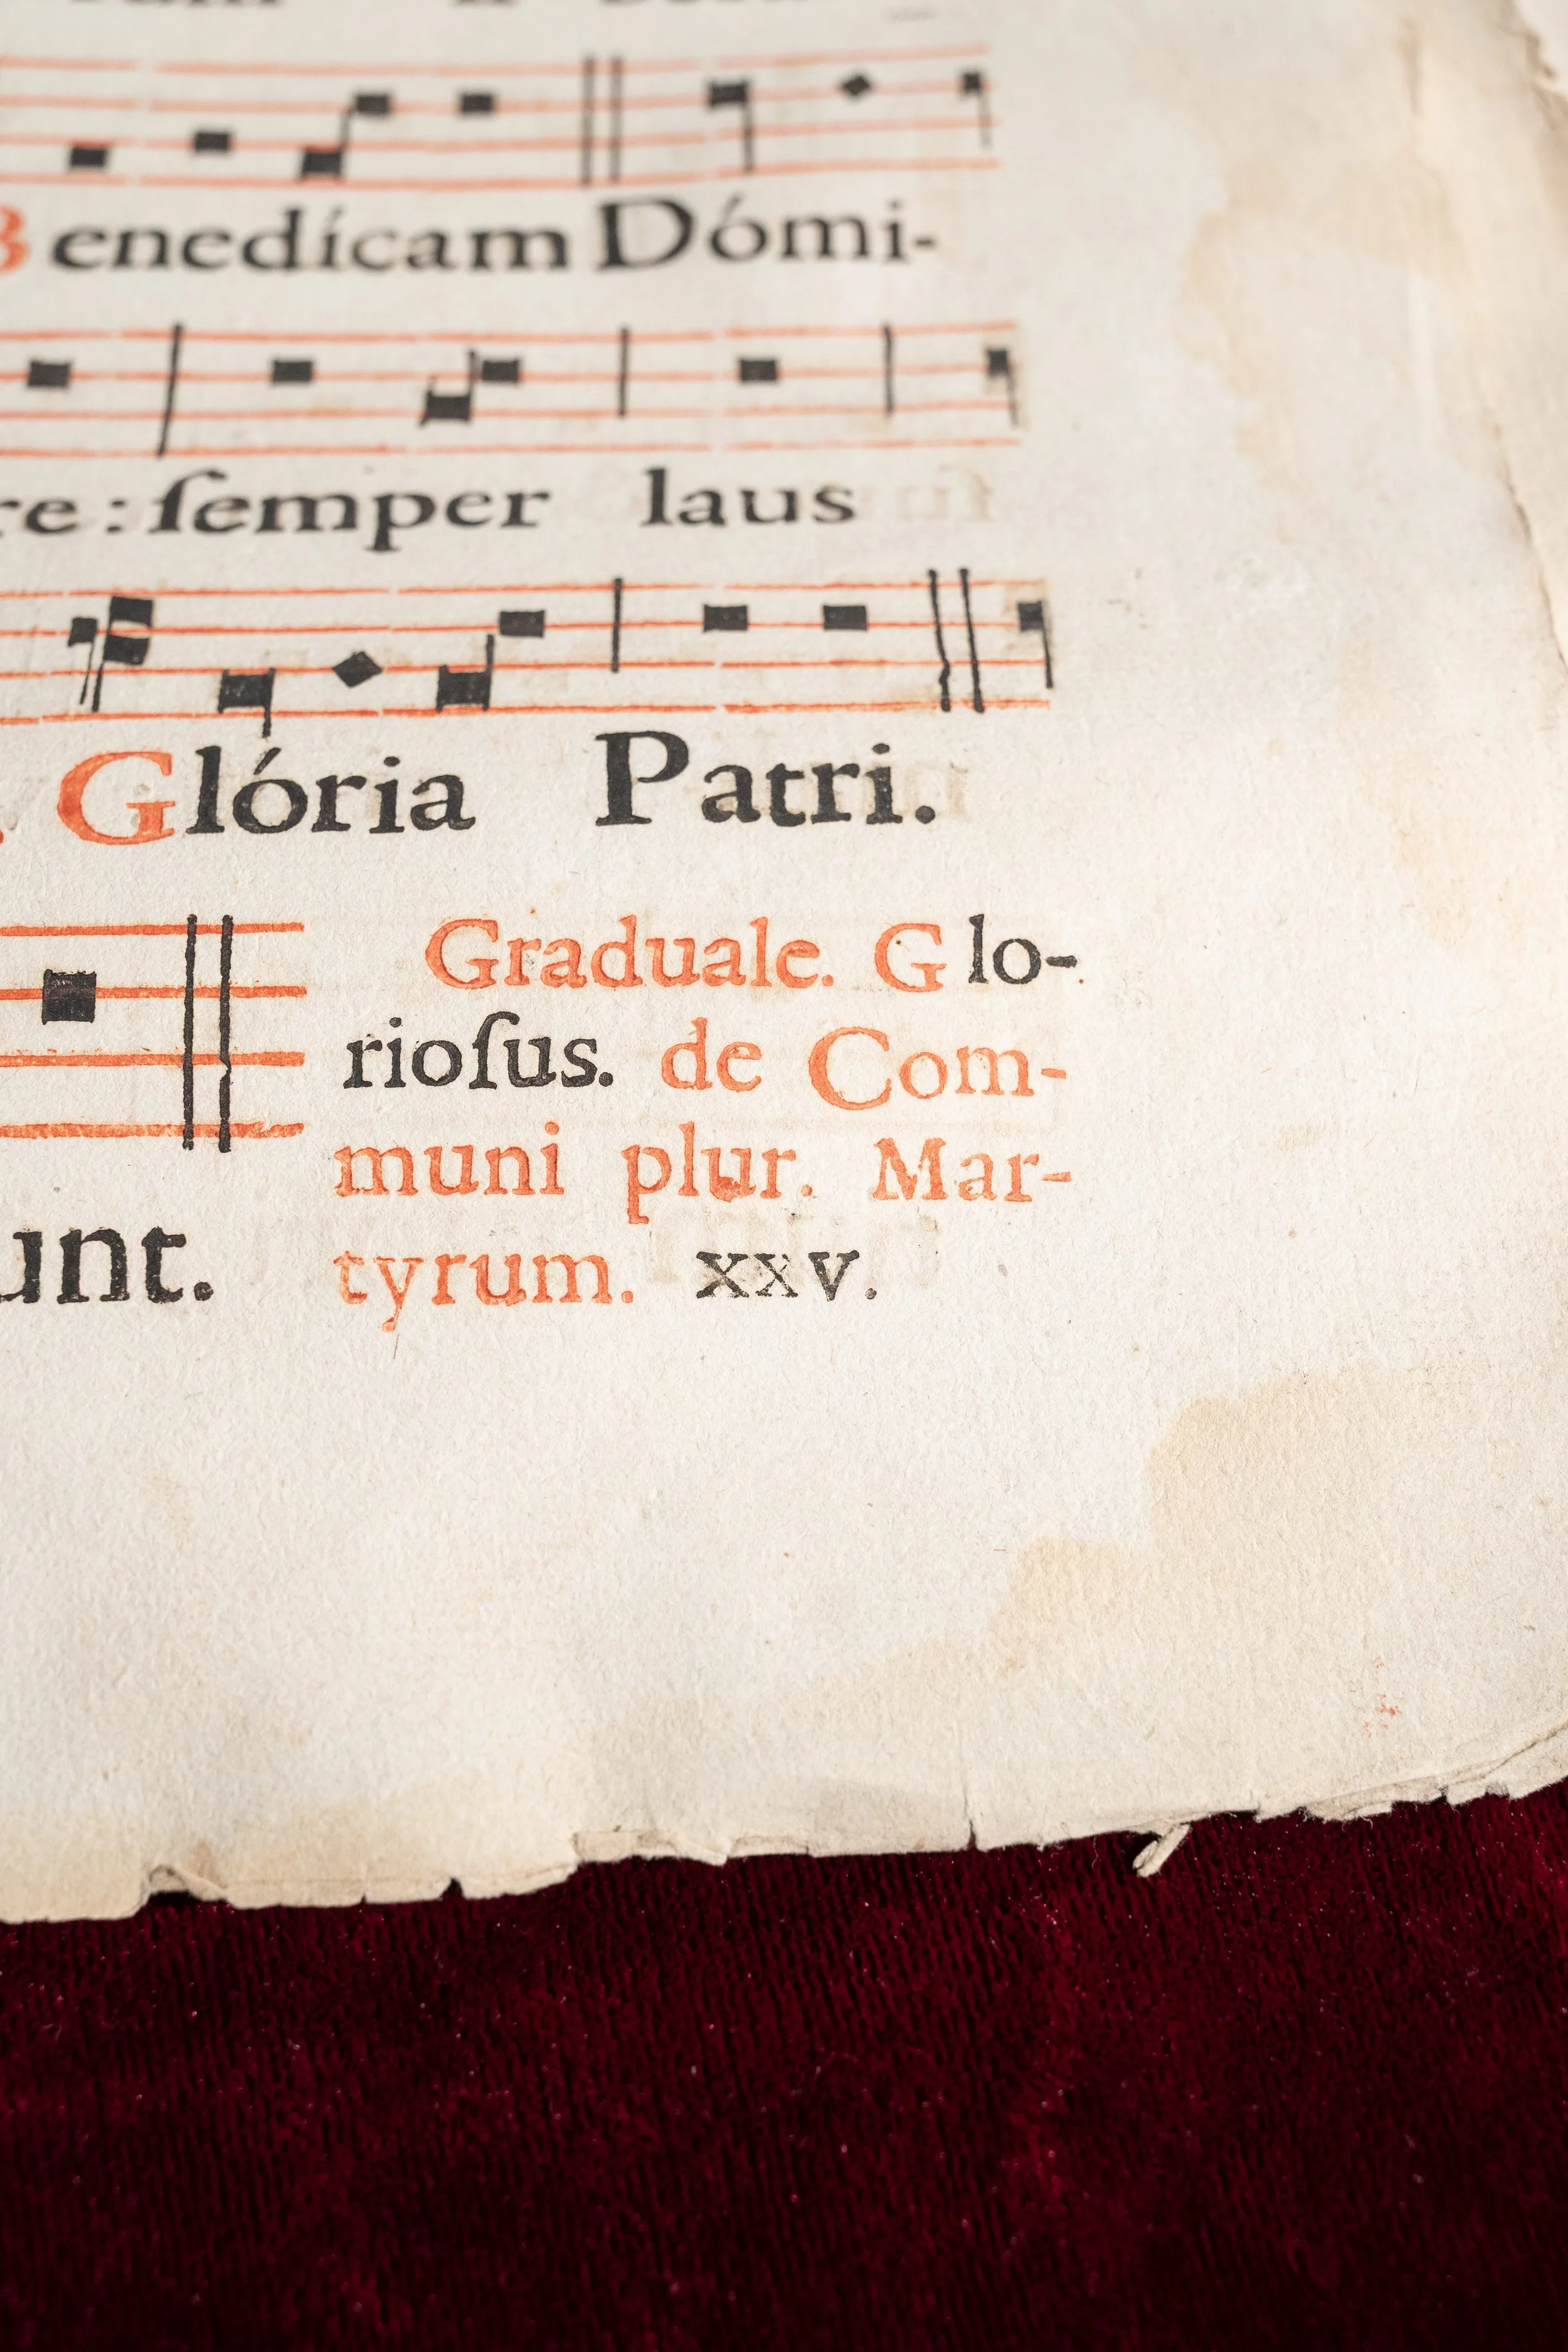 Benedícam Dómi-
re : ſemper laus
Glória Patri.
Graduale. Glo-
rioſus. de Com-
muni plur. Mar-
unt. tyrum. xxv.